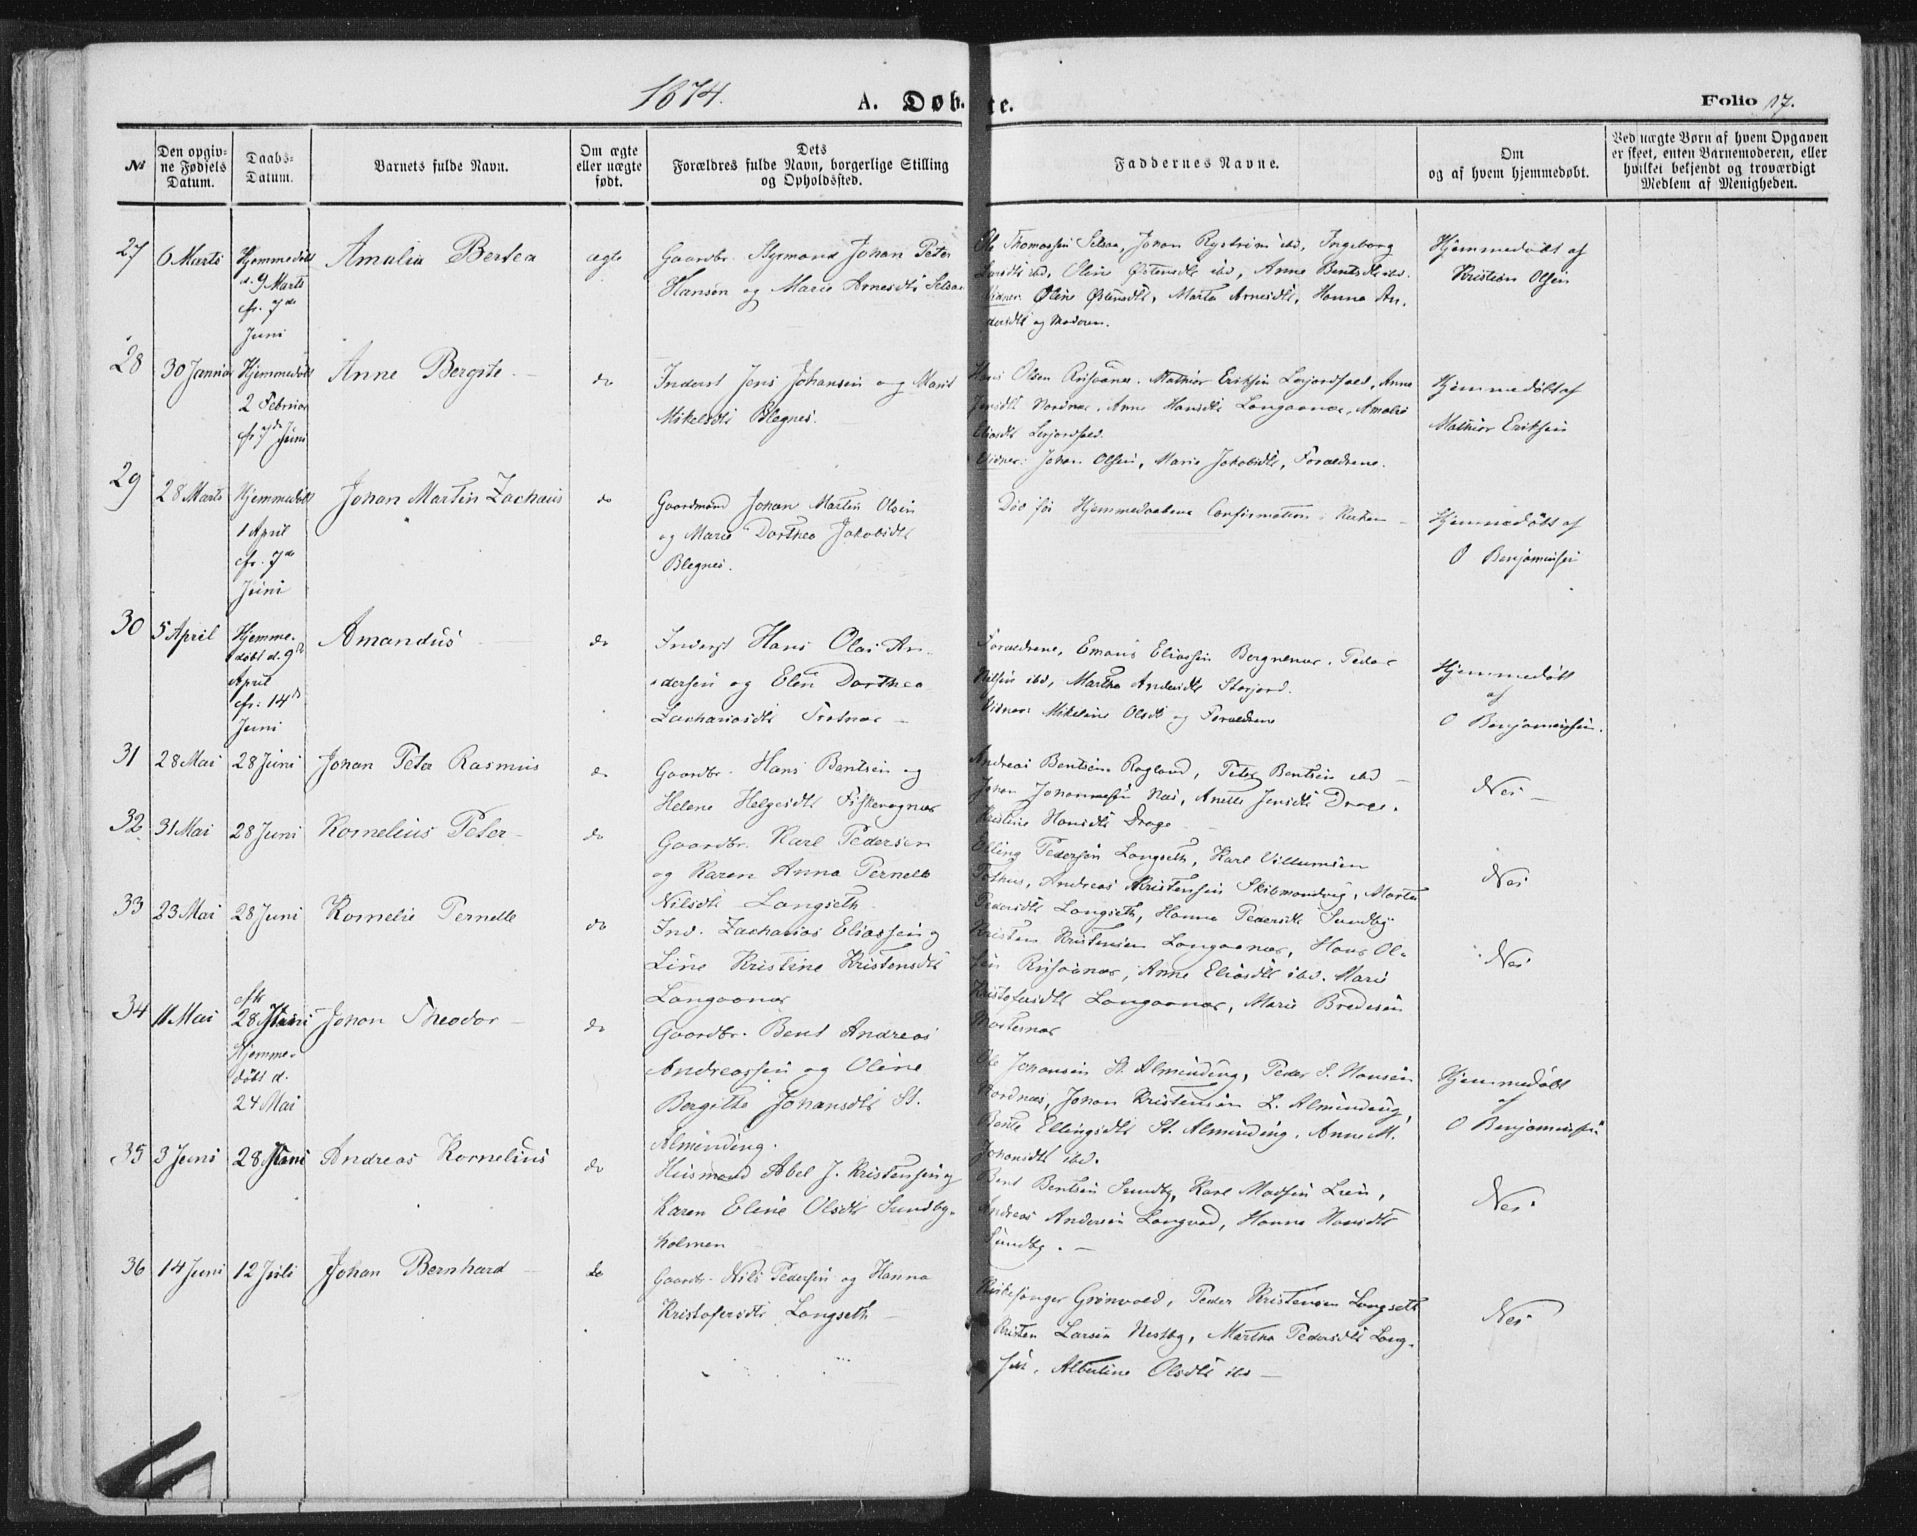 1874.
A. Døb-
te.
Folio 17.
No
Den opgiv-
ne Fødsels
Datum.
Daabs-
Datum.
Barnets fulde Navn.
Om ægte
eller uægte
født.
Dets
Forældres fulde Navn, borgerlige Stilling
og Opholdssted.
Faddernes Navne.
Om
og af hvem hjemmedøbt.
Ved uægte Børn af hvem Opgaven
er skeet, enten Barnemoderen, eller
hvilket bekjendt og troværdigt
Medlem af Menigheden.
27
6 Marts
Hjemmedøbt
d. 9 Marts
cfr. 7de
Juni
Amalia Bertea
ægte
Gaardbr. Styrmand Johan Peter
Hansen og Marie Arnesdtr Selsaa
Ole Thomassen Selsaa, Johan Rystrøm ibd, Ingeborg
Larsdtr ibd, Oline Østensdtr ibd, Anne Bentsdtr ibd.
Vidner: Oline Østensdtr, Marta Arnesdtr, Hanna An-
dersdtr og Moderen.
Hjemmedøbt af
Kristian Olsen
28
30 Januar
Hjemmedøbt
2 Februar
cfr 7de Juni
Anne Bergite
do
Inderst Jens Johansen og Marit
Mikelsdtr Blegnes.
Hans Olsen Risøanes. Mathias Eriksen Lerjordfald, Anne
Jensdtr Nordnæs, Anne Hansdtr Langaanæs, Amalie
Eliasdtr Lerjordfald.
Vidner: Johan Olsen, Marie Jakobsdtr, Forældrene.
Hjemmedøbt af
Mathias Eriksen
29
28 Marts
Hjemmedøbt
1 April
cfr. 7de
Juni
Johan Martin Zachæus
do
Gaardmand Johan Martin Olsen
og Marie Dorthea Jakobsdtr
Blegnes.
Død før Hjemmedaabens Confirmation i Kirken
Hjemmedøbt af
O Benjaminsen
30
5 April
Hjemme-
døbt d. 9de
April
cfr. 14de
Juni
Amandus
do
Inderst Hans Olai An-
dersen og Elen Dorthea
Zachariasdtr
Forældrene, Emans Eliassen Bergnenæs, Peder
Nilsen ibd, Martha Andersdtr Storjord.
Vidner: Mikeline Olsdtr og Forældrene
Hjemmedøbt
af
O Benjaminsen.
31
28 Mai
28 Juni
Johan Peter Rasmus
do
Gaardbr. Hans Bentsen og
Helene Helgesdtr Fiskevognæs
Andreas Bentsen Rogland, Peter Bentsen ibd
Johan Johannesen Næs, Anette Jensdtr Drage.
Kristine Hansdtr Drage
Nei
32
31 Mai
28 Juni
Kornelius Peter
do
Gaardbr. Karl Pedersen
og Karen Anna Pernelle
Nilsdtr Langseth
Elling Pedersen Langseth, Karl Villumsen
Pothus, Andreas Kristensen Skibmandvig, Marta
Pedersdtr Langseth, Hanna Pedersdtr Sundby
Nei
33
23 Mai
28 Juni
Kornelie Pernelle
do
Ind. Zacharias Eliassen og
Line Kristine Kristensdtr
Langaanæs
Kristen Kristensen Langaanæs, Hans Ol-
sen Risøanæs, Anne Eliasdtr ibd. Marie
Kristofersdtr Langaanæs, Marie Bredesen
Mosternæs
Nei
34
11 Mai
cfr
28 Juni
Hjemme-
døbt d.
24 Mai
Johan Theodor
do
Gaardbr. Bent Andreas
Andreassen og Oline
Bergitte Johansdtr St.
Alminding.
Ole Johansen St. Alminding, Peder S. Hansen
Nordnæs, Johan Kristensen L. Alminding,
Bente Ellingsdtr St. Alminding. Anne M.
Johansdtr ibd.
Hjemmedøbt
af
O Benjaminsen
35
3 Juni
28 Juni
Andreas Kornelius
do
Husmand Abel J. Kristensen og
Karen Eline Olsdtr Sundby-
holmen
Bent Bentsen Sundby, Karl Madsen Lien,
Andreas Andersen Langvad, Hanna Hansdtr
Sundby.
Nei
36
14 Juni
12 Juli
Johan Bernhard
do
Gaardbr. Nils Pedersen og Hanna
Kristofersdtr Langseth
Kirkesanger Grønvold, Peder Kristensen Langseth
Kristen Larsen Nestby, Martha Pedersdtr Lang-
set, Albertine Olsdtr ibd
Nei